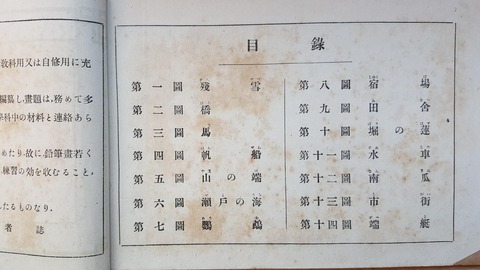 敎科用又は自修用に充
編纂し,畫題は,務めて多
科中の材料と連絡あら
めたり.故に,鉛筆畫若く
練習の効を収むること,
たるものなり.
者 誌
目錄
第一圖 殘雪
第二圖 橋
第三圖 馬
第四圖 帆船
第五圖 山の端
第六圖 瀬戸の海
第七圖 鸚鵡
第八圖 宿場
第九圖 田舍
第十圖 堀の蓮
第十一圖 水車
第十二圖 南瓜
第十三圖 市街
第十四圖 端艇